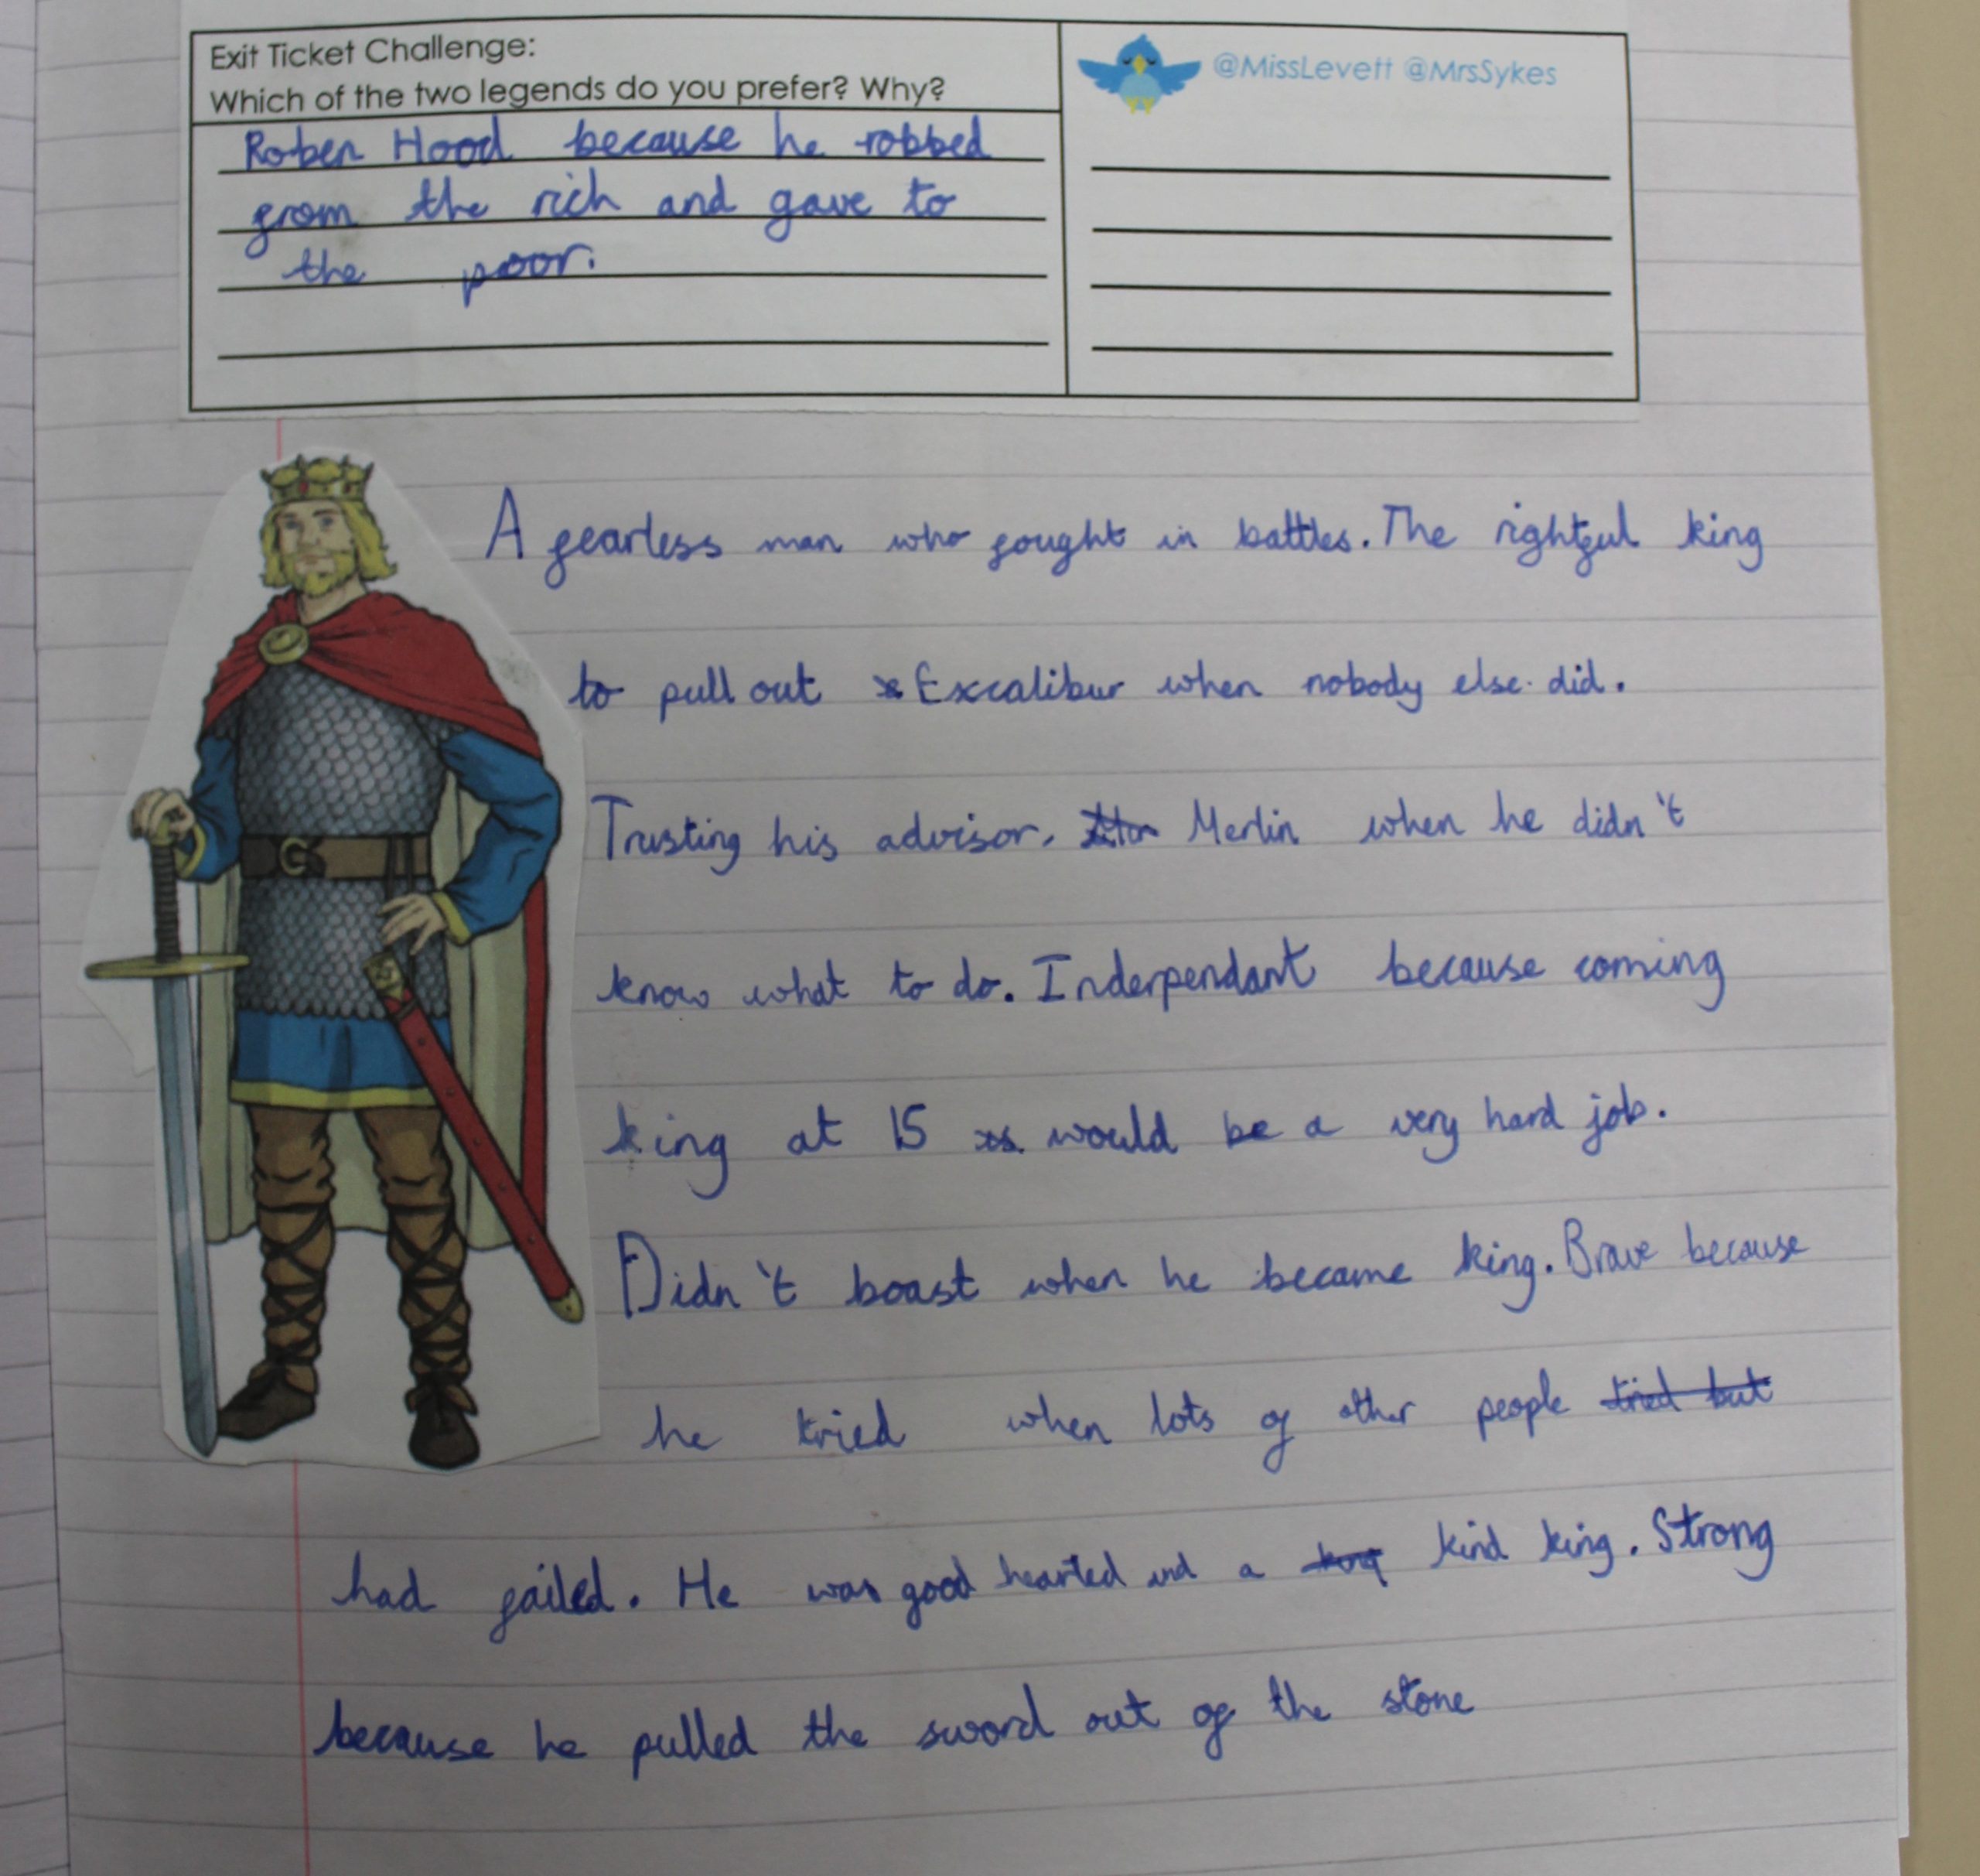 Exit Ticket Challenge:
Which of the two legends do you prefer? Why?
@MissLevett @MrsSykes
Roben Hood because he robbed
from the rich and gave to
the poor.
A fearless man who fought in battles. The rightful king
to pull out Excalibur when nobody else did.
Trusting his advisor, Merlin when he didn't
know what to do. Inderpendant because coming
king at 15 would be a very hard job.
Didn't boast when he became king. Brave because
he tried when lots of other people tried but
had failed. He was good hearted and a king kind king. Strong
because he pulled the sword out of the stone